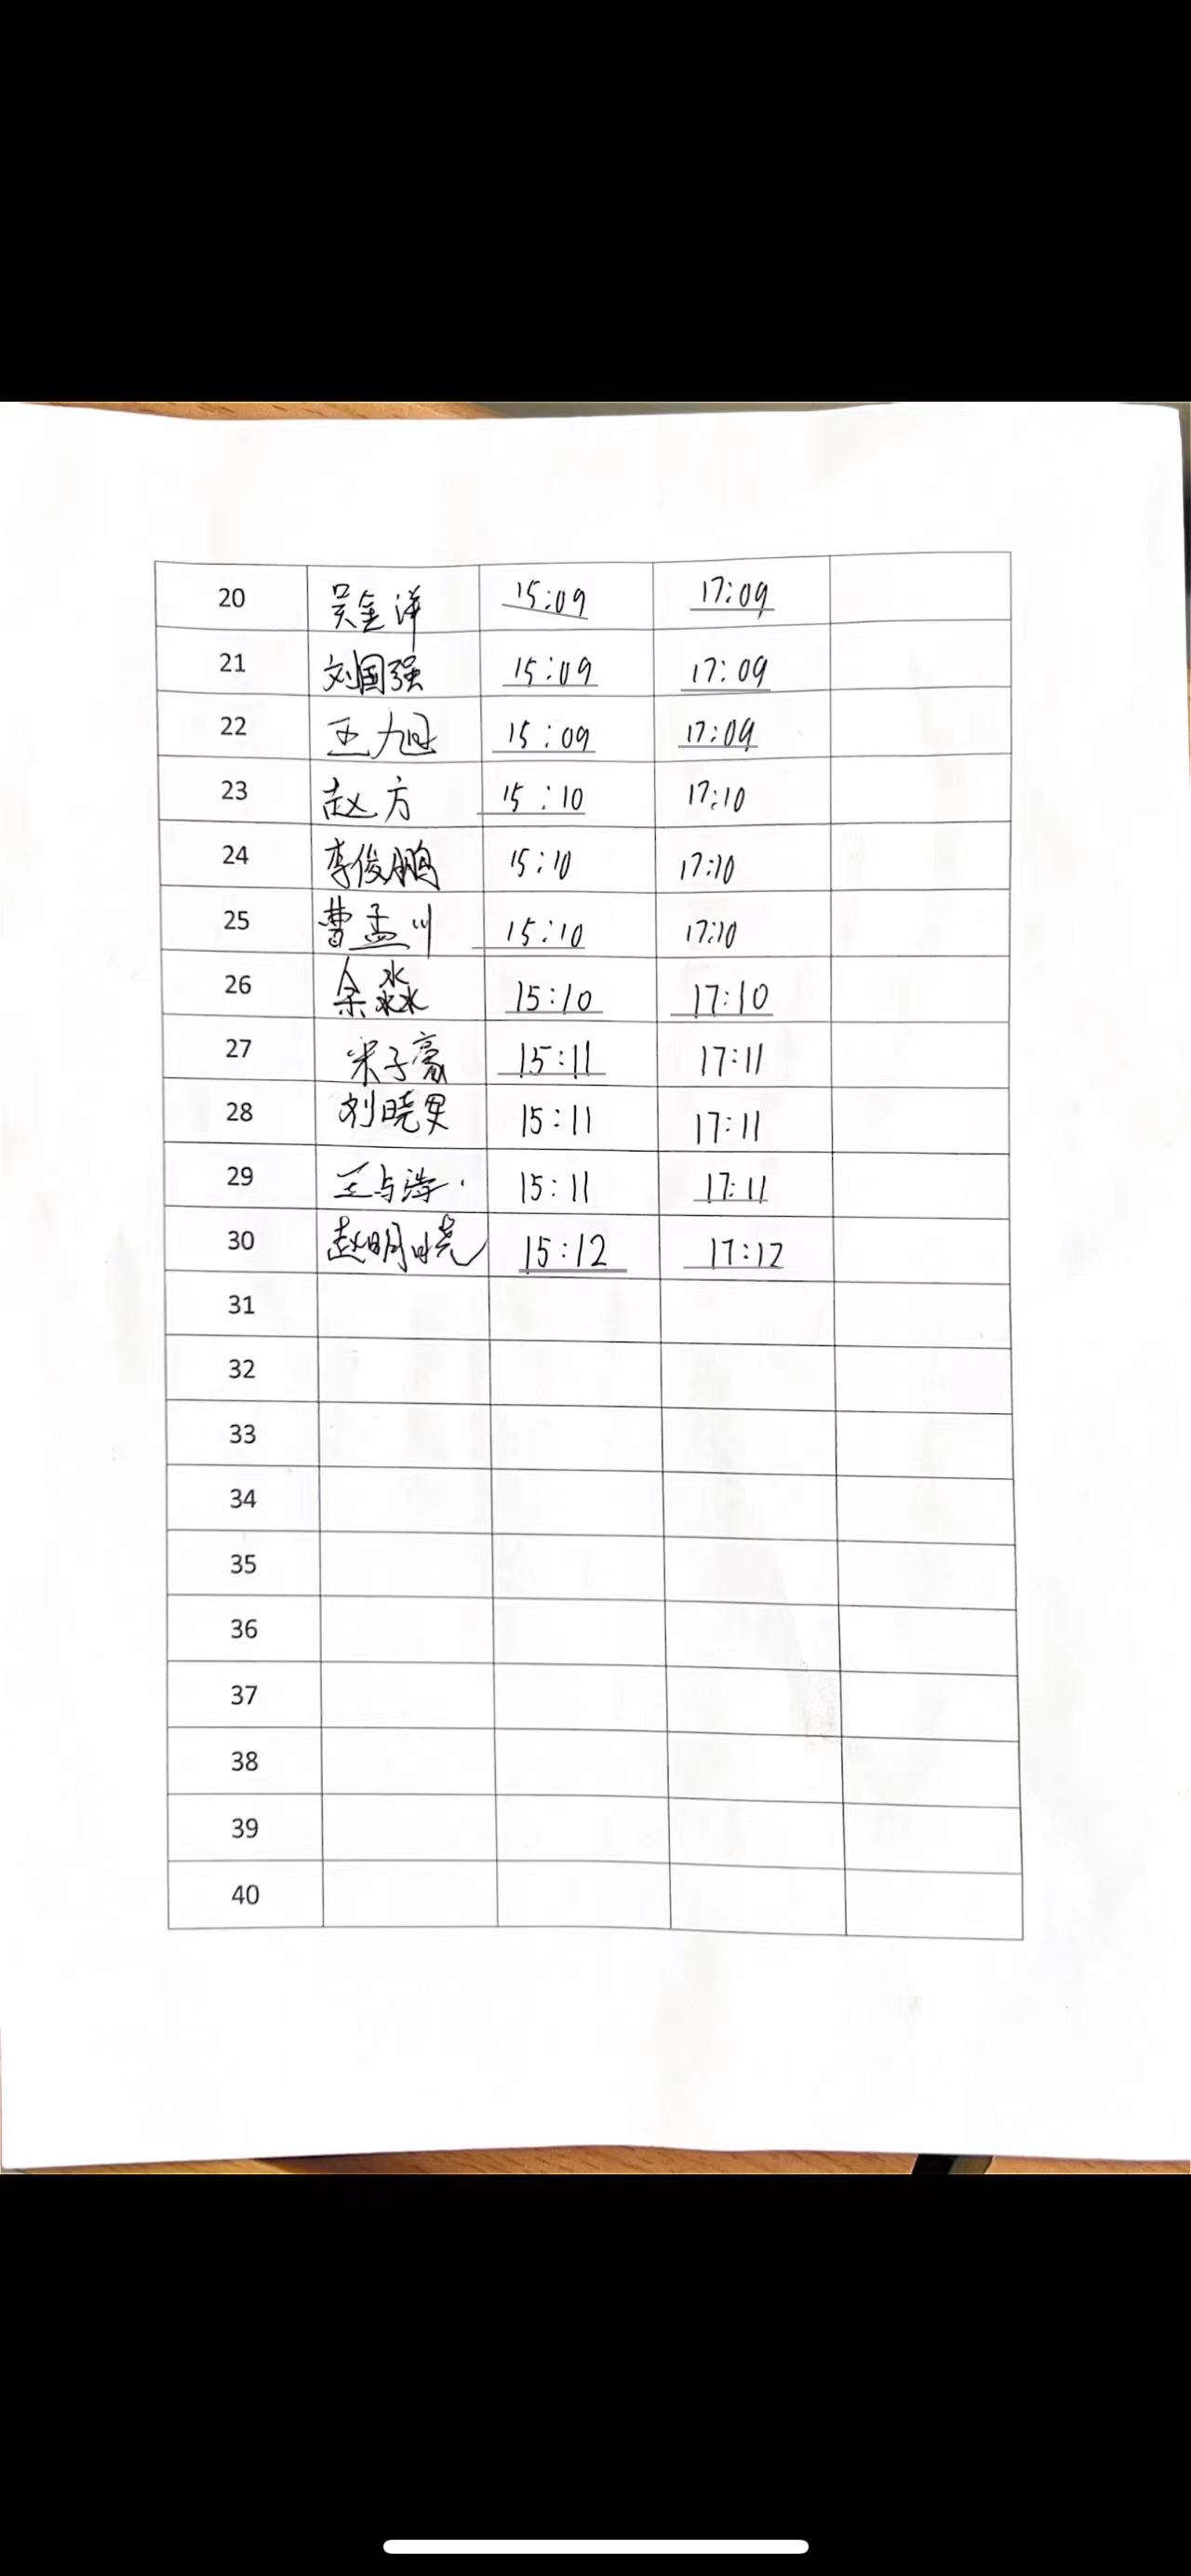 20 吴金洋 15:09 17:09
21 刘国强 15:09 17:09
22 王旭 15:09 17:09
23 赵方 15:10 17:10
24 李俊鹏 15:10 17:10
25 曹孟川 15:10 17:10
26 余淼 15:10 17:10
27 宋子豪 15:11 17:11
28 刘晓男 15:11 17:11
29 王与涛 15:11 17:11
30 赵明晓 15:12 17:12
31
32
33
34
35
36
37
38
39
40